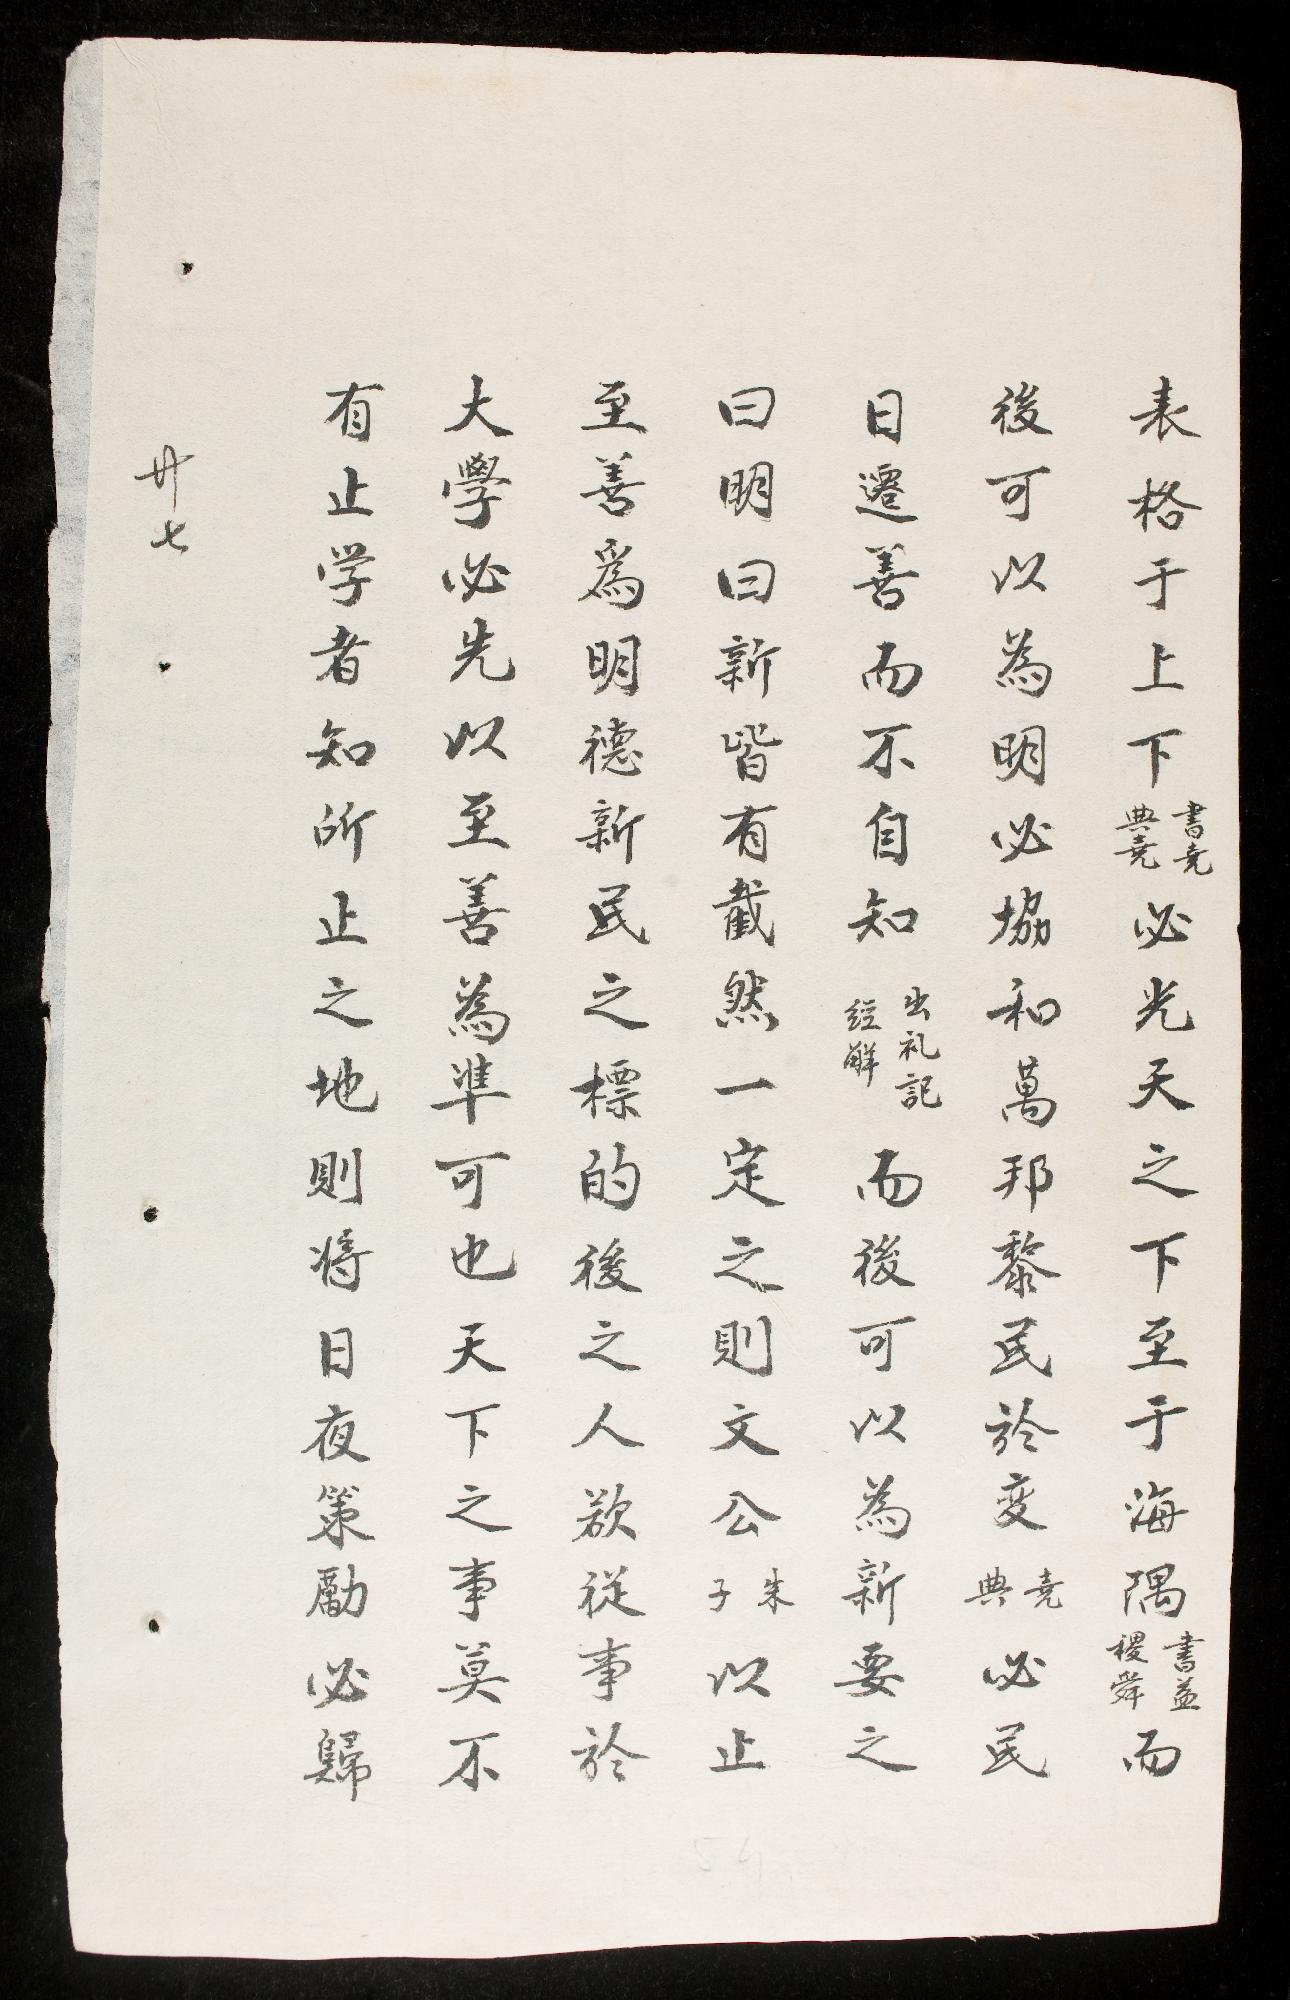 表格于上下書堯典堯必光天之下至于海隅書益稷舜而
後可以為明必協和萬邦黎民於変堯典必民
日遷善而不自知出礼記經解而後可以為新要之
曰明曰新皆有截然一定之則文公朱子以止
至善爲明德新民之標的後之人欲從事於
大學必先以至善為準可也天下之事莫不
有止学者知所止之地則将日夜策勵必歸
廿七